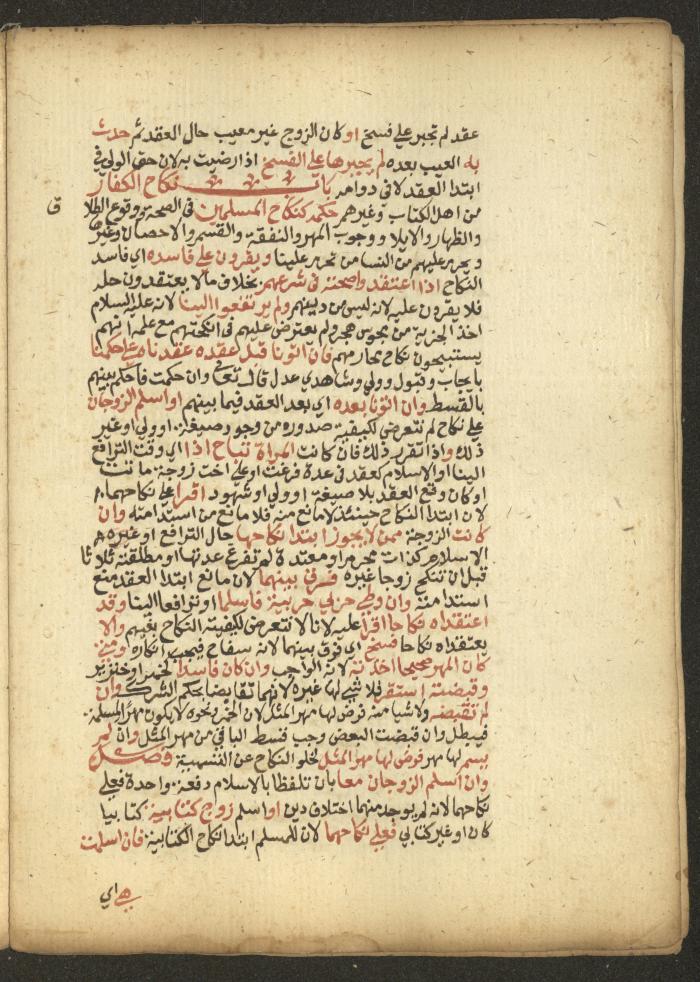 عقد لم تجبر على فسخ او كان الزوج غير معيب حال العقد ثم حدث
به العيب بعده لم يجبرها على الفسخ اذا رضيت به لان حق الولي في
ابتدا العقد لا في دوامه باب نكاح الكفار
من اهل الكتاب وغيرهم حكمه كنكاح المسلمين في الصحة ووقوع الطلاق
والظهار والايلا ووجوب المهر والنفقة والقسم والاحصان وغيرها
ويحرم عليهم من النسا من تحرم علينا ويقرون على فاسده اي فاسد
النكاح اذا اعتقدوا صحته في شرعهم بخلاف ما لا يعتقدون حله
فلا يقرون عليه لانه ليس من دينهم ولم يرتفعوا الينا لانه عليه السلام
اخذ الجزية من مجوس هجر ولم يعترض عليهم في انكحتهم مع علمه انهم
يستبيحون نكاح محارمهم فان اتونا قبل عقده عقدناه على حكمنا
بايجاب وقبول وولي وشاهدي عدل قال تعالى وان حكمت فاحكم بينهم
بالقسط وان اتونا بعده اي بعد العقد فيما بينهم او اسلم الزوجان
على نكاح لم نتعرض لكيفية صدوره من وجود صيغة او ولي او غير
ذلك واذا تقرر ذلك فان كانت المراة تباح اذا اي وقت الترافع
الينا او الاسلام كعقد في عدة فرغت او على اخت زوجة ماتت
او كان وقع العقد بلا صيغة او ولي او شهود اقرا على نكاحهما
لان ابتدا النكاح حينئذ لا مانع منه فلا مانع من استدامته وان
كانت الزوجة ممن لا يجوز ابتدا نكاحها حال الترافع او
الاسلام كذات محرم او معتدة لم تفرغ عدتها او مطلقته ثلاثا
قبل ان تنكح زوجا غيره فرق بينهما لان ما منع ابتدا العقد منع
استدامته وان وطي حربي حربية فاسلما او ترافعا الينا وقد
اعتقداه نكاحا اقرا عليه لانا لا نتعرض لكيفية النكاح بينهم والا
يعتقداه نكاحا فسخ اي فرق بينهما لانه سفاح فيجب انكاره ومتى
كان المهر صحيحا اخذته لانه الواجب وان كان فاسدا كخمر او خنزير
وقبضته استقر فلا شي لها غيره لانهما تقابضا بحكم الشرك وان
لم تقبضه ولا شيا منه فرض لها مهر المثل لان الخمر ونحوه لا يكون مهرا لمسلمة
فيبطل وان قبضت البعض وجب قسط الباقي من مهر المثل وان لم
يسم لها مهر فرض لها مهر المثل لخلو النكاح عن التسمية فصل
وان اسلم الزوجان معا بان تلفظا بالاسلام دفعة واحدة فعلى
نكاحهما لانه لم يوجد منهما اختلاف دين او اسلم زوج كتابية كتابيا
كان او غير كتابي فعلى نكاحهما لان للمسلم ابتدا نكاح الكتابية فان اسلمت
هي اي